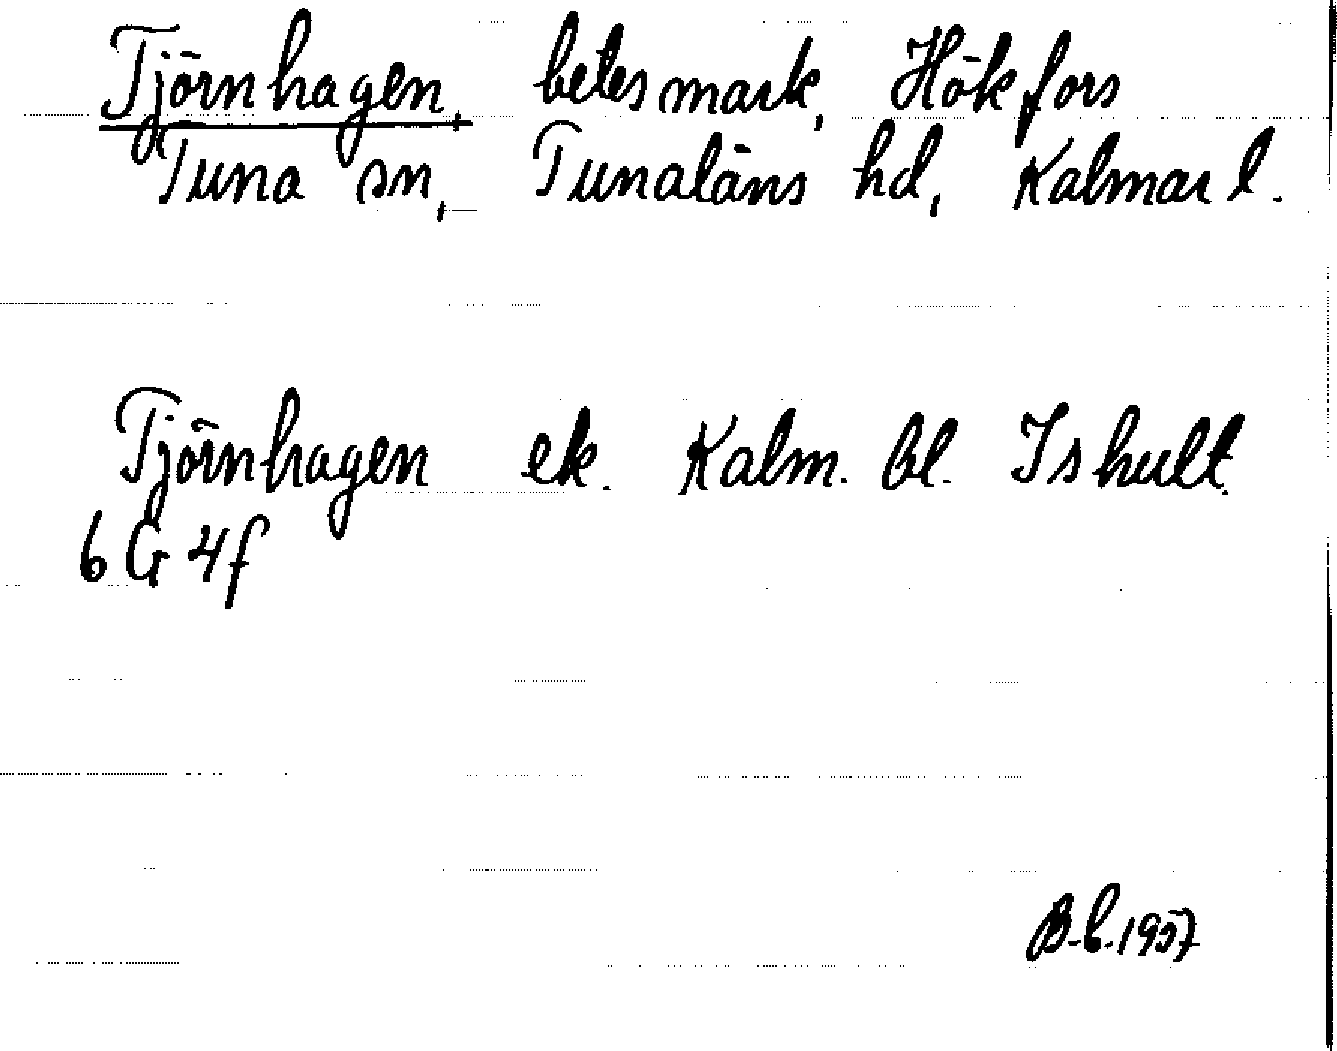 Tjörnhagen, betesmark, Hökfors
Tuna sn, Tunaläns hd, Kalmar l.
Tjörnhagen ek. Kalm. bl. Ishult
6 G 4f
B-b. 1957